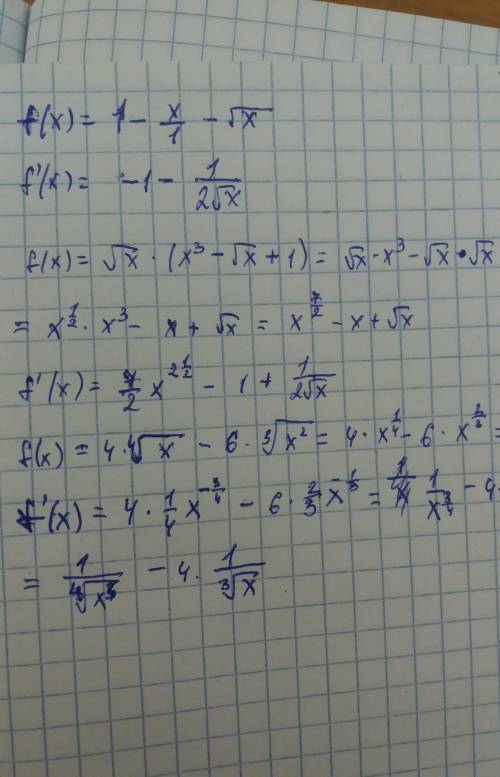 f(x) = 1 - x/1 - √x
f'(x) = -1 - 1/(2√x)
f(x) = √x · (x³ - √x + 1) = √x · x³ - √x · √x
= x^(1/2) · x³ - x + √x = x^(7/2) - x + √x
f'(x) = 7/2 x^(2 1/2) - 1 + 1/(2√x)
f(x) = 4 · ⁴√x - 6 · ³√(x²) = 4 · x^(1/4) - 6 · x^(2/3) =
f'(x) = 4 · 1/4 x^(-3/4) - 6 · 2/3 x^(-1/3) = 1/x^(3/4) - 4 ·
= 1/⁴√(x³) - 4 · 1/³√x